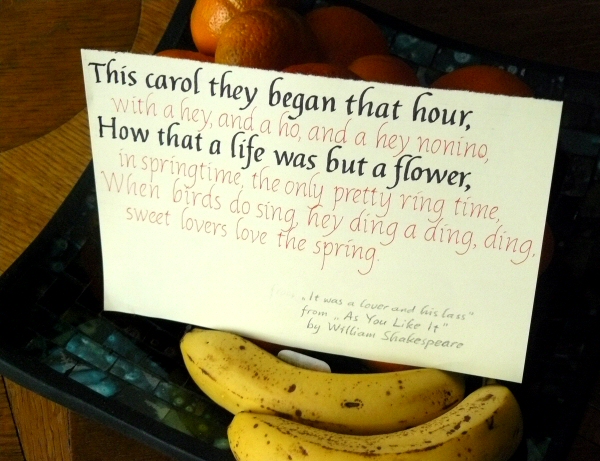 This carol they began that hour,
with a hey, and a ho, and a hey nonino,
How that a life was but a flower,
in springtime, the only pretty ring time,
When birds do sing, hey ding a ding, ding,
sweet lovers love the spring.
„It was a lover and his lass"
from „As You Like It"
by William Shakespeare